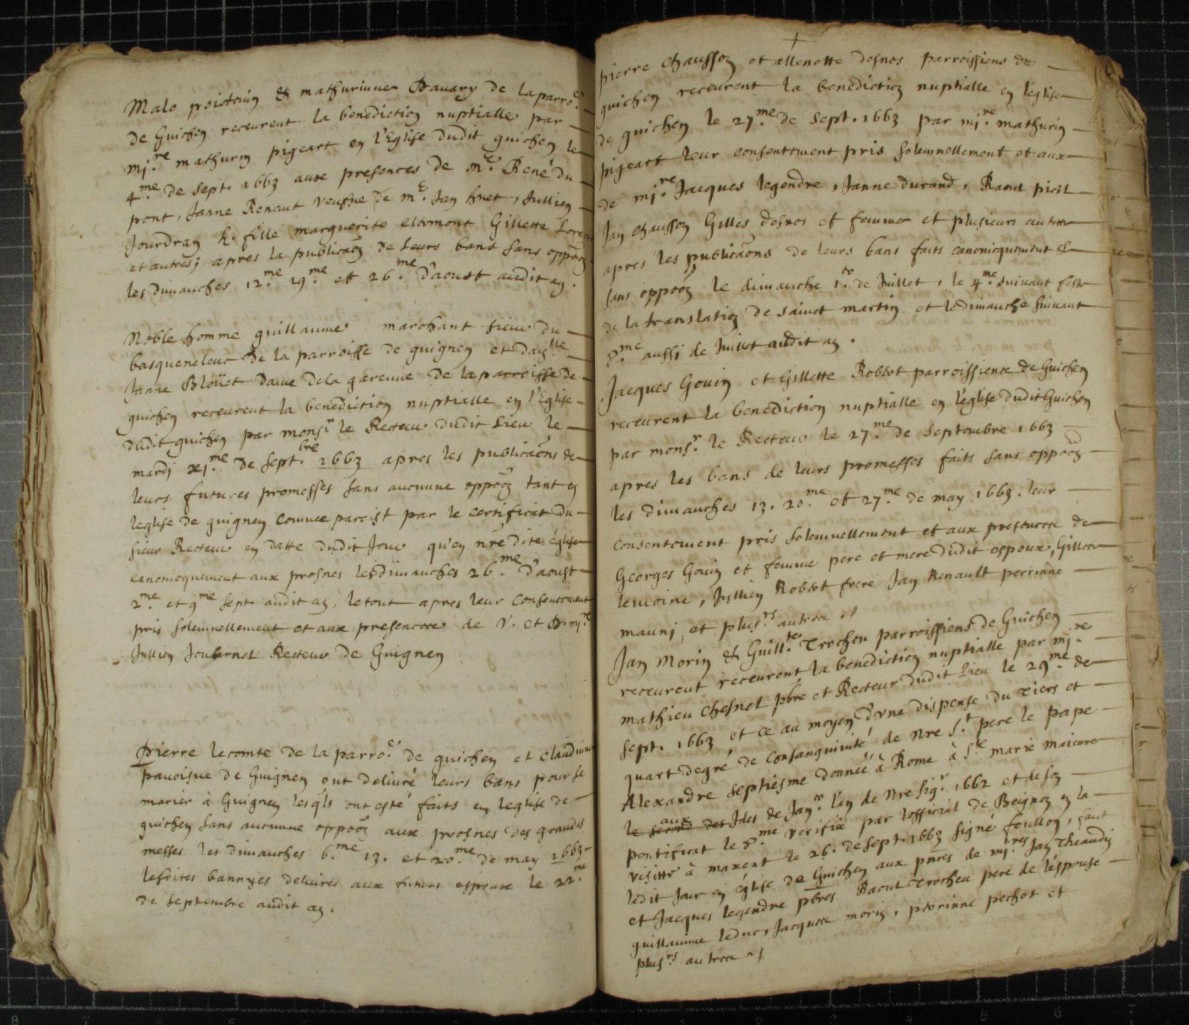 Malo poictevin & mathurinne Davary de la parroe
de Guichen receurent la benediction nuptialle par
mire mathurin pigeart en l'Eglise dudit guichen le
4.me de sept. 1663 aux presences de me René du
pont, Janne Renaut veufue de me Jan huet, Jullien
Jourdran & fille marguerite Gillette
et autres, apres la publicaon de Leurs bans sans oppoon
les Dimanches 12.me 19.me et 26.me d'aoust audit an.
Noble homme guillaume marchant sieur du
de la parroisse de guignen et dam.lle
Janne Bloüet dame de la garenne de la parroisse de
guichen receurent la benediction nuptialle en l'Eglise
dudit guichen par monsr le Recteur dudit Lieu le
mardi xi.me de septbre 1663 apres les publicaons de
leurs futures promesses sans aucunne oppoon tant en
leglise de guignen comme paroist par le certificat du
sieur Recteur en datte dudit Jour qu'en nre dite eglise
canonicquement aux prosnes les dimanches 26.me d'aoust
2.me et 9.me sept audit an, le tout apres leur consentement
pris solemnellement et aux presences de V. et D. mire
Jullien Recteur de Guignen
Pierre lecomte de la parroe de guichen et claudinne
de Guignen ont delivré leurs bans pour se
marier à Guignen lesqls ont esté faits en leglise de
guichen sans aucunne oppoon aux prosnes des grandes
messes les dimanches 6.me 13. et 20.me de may 1663
lesdites bannyes delivres aux futurs espoux le 22.me
de septembre audit an.
pierre chausson et allenette desnos parroissiens de
guichen receurent la benediction nuptialle en l'eglise
de guichen le 27.me de sept. 1663 par mire mathurin
pigeart leur consentement pris solemnellement et aux
de mire Jacques legendre, Janne durand, Raoul
Jan chausson Gilles desnos et femme et plusieurs autres
apres les publicaons de leurs bans faits canonicquement &
sans oppoon le dimanche 1.er de Juillet, le 4.me suivant feste
de la translation de sainct martin et le dimanche suivant
8.me aussi de Juillet audit an.
Jacques Gouin et Gillette Robert parroissiens de Guichen
receurent la benediction nuptialle en l'eglise dudit Guichen
par monsr le Recteur le 27.me de Septembre 1663
apres les bans de leurs promesses faits sans oppoon
les dimanches 13. 20.me et 27.me de may 1663. leur
consentement pris solemnellement et aux presences de
Georges Gouin et femme pere et mere dudit espoux, Gillette
lemoine, Jullien Robert frere Jan Renault perrinne
et plusrs autres
Jan Morin & Guillte Trochon parroissiens de Guichen
receurent receurent la benediction nuptialle par mire
mathieu chesnel pbre et Recteur dudit Lieu le 29.me de
sept. 1663 et ce au moyen d'vne dispense du tiers et
quart degré de consanguinité de nre St pere le pape
Alexandre septiesme donnée à Rome à Ste marie maieure
aux Ides de Janer l'an de nre sigr 1662 et de son
pontificat le 8.me verifié par l'official de en la
visitte à maxent le 26. de sept. 1663 signé foullon, faict
ledit Jour en église de Guichen aux pnces de mires Jan
et Jacques legendre pbres Raoul Trochon pere de lespouse
guillaume leduc, Jacques morin, perrinne pechot et
plusrs autres